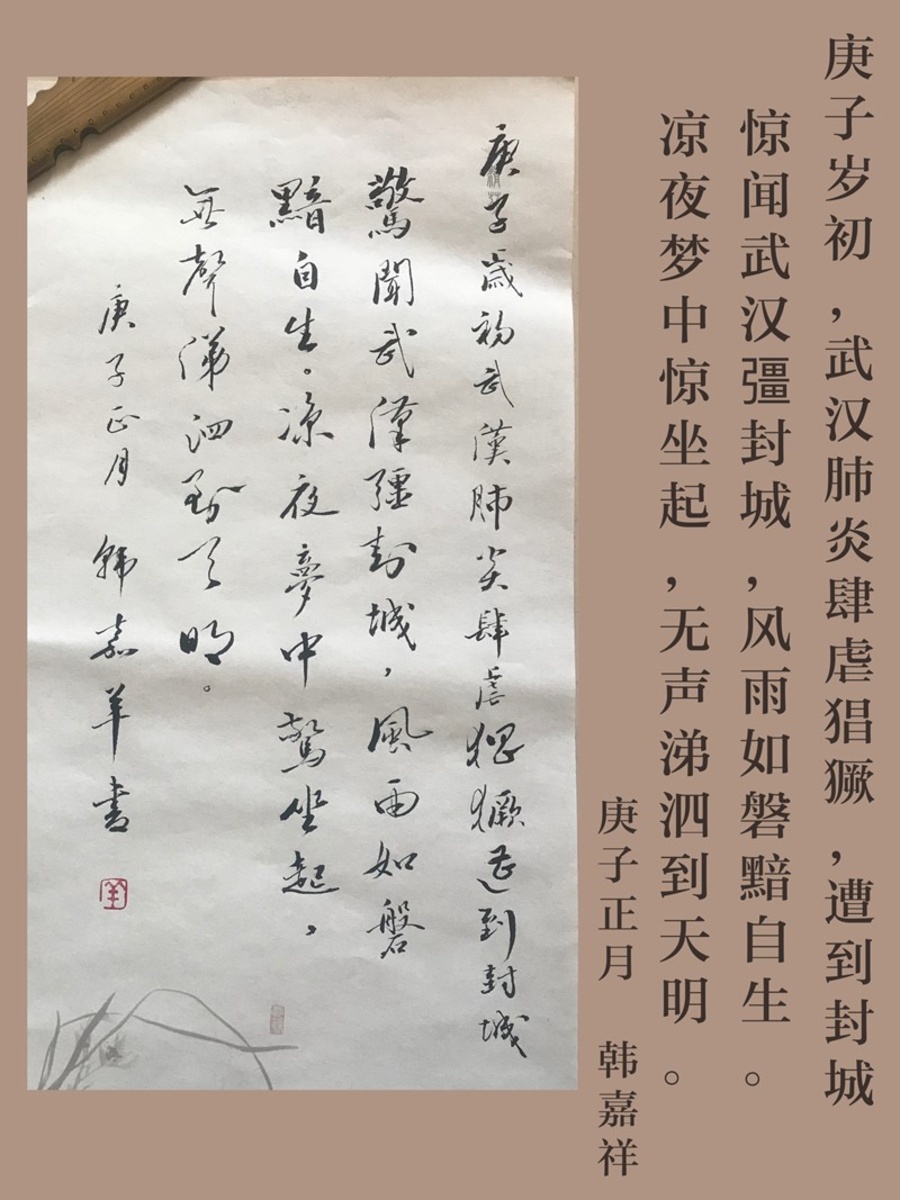 庚子岁初，武汉肺炎肆虐猖獗，遭到封城
惊闻武汉彊封城，风雨如磐黯自生。
凉夜梦中惊坐起，无声涕泗到天明。
庚子正月 韩嘉祥
庚子歲初武漢肺炎肆虐猖獗遭到封城
驚聞武漢彊封城，風雨如磐
黯自生。凉夜夢中驚坐起，
無聲涕泗到天明。
庚子正月 韩嘉羊书